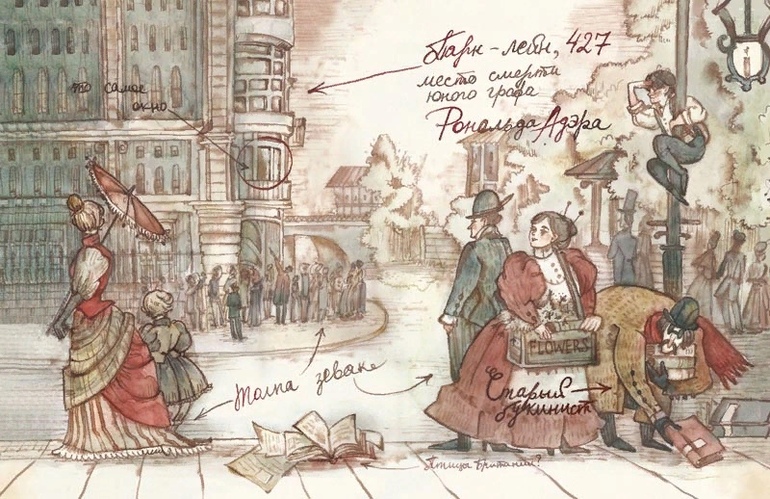 Парк-лейн, 427
место смерти
юного графа
Рональда Адэра
то самое
окно
FLOWERS
Толпа зевак
Старый
букинист
Птицы Британии?